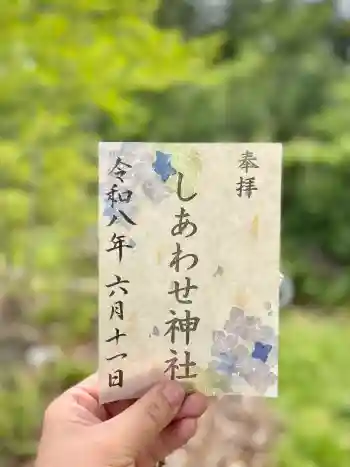 奉拝
しあわせ神社
令和八年 六月十一日